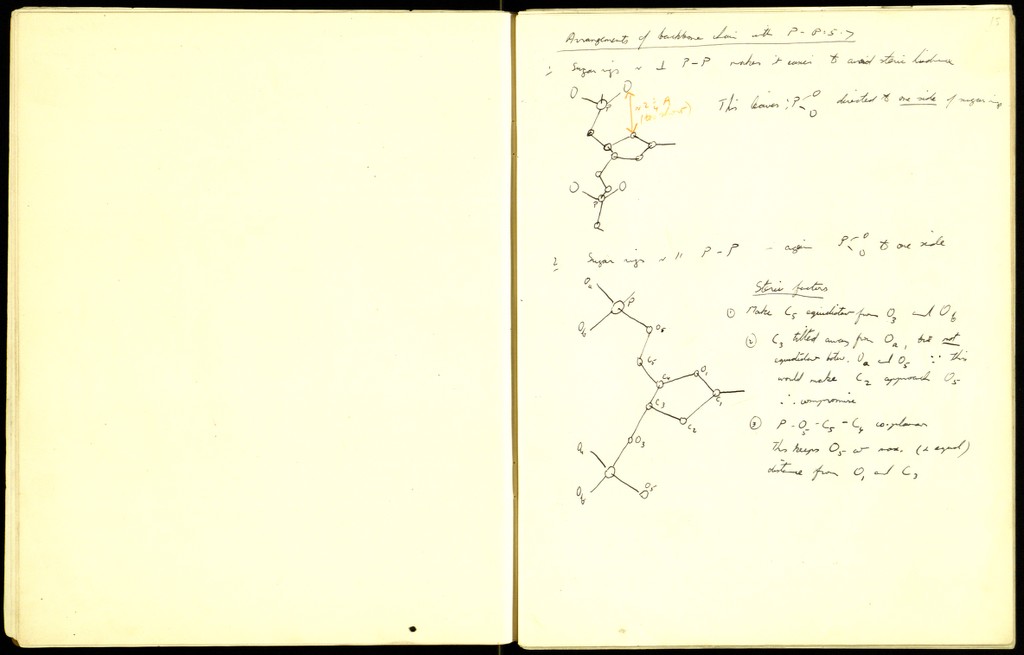 15
Arrangements of backbone chain with P-P 5.7
1 Sugar rings ~ ⊥ P-P makes it easier to avoid steric hindrance
O O
P
This leaves P O O directed to one side of sugar ring
O O
P
2 Sugar rings ~ // P-P - again P O O to one side
Oa
P
Ob
O5
C5
C4 O1
C3 C1
C2
O3
Oa
Ob O5
Steric factors
① Make C5 equidistant from O3 and Ob
② C3 tilted away from Oa, but not
equidistant betw. Oa and O5 ∵ this
would make C2 approach O5
∴ compromise
③ P-O5-C5-C4 co-planar
This keeps O5 at max. (& equal)
distance from O1 and C3